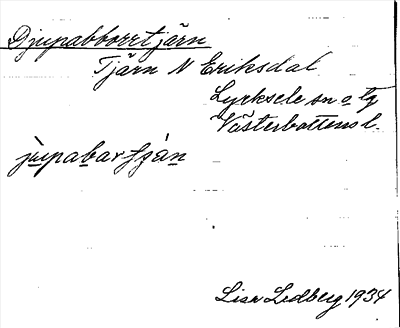 Djupabborrtjärn
Tjärn N Eriksdal
Lycksele sn o tg
Västerbottens l.
Lisa Lidberg 1934